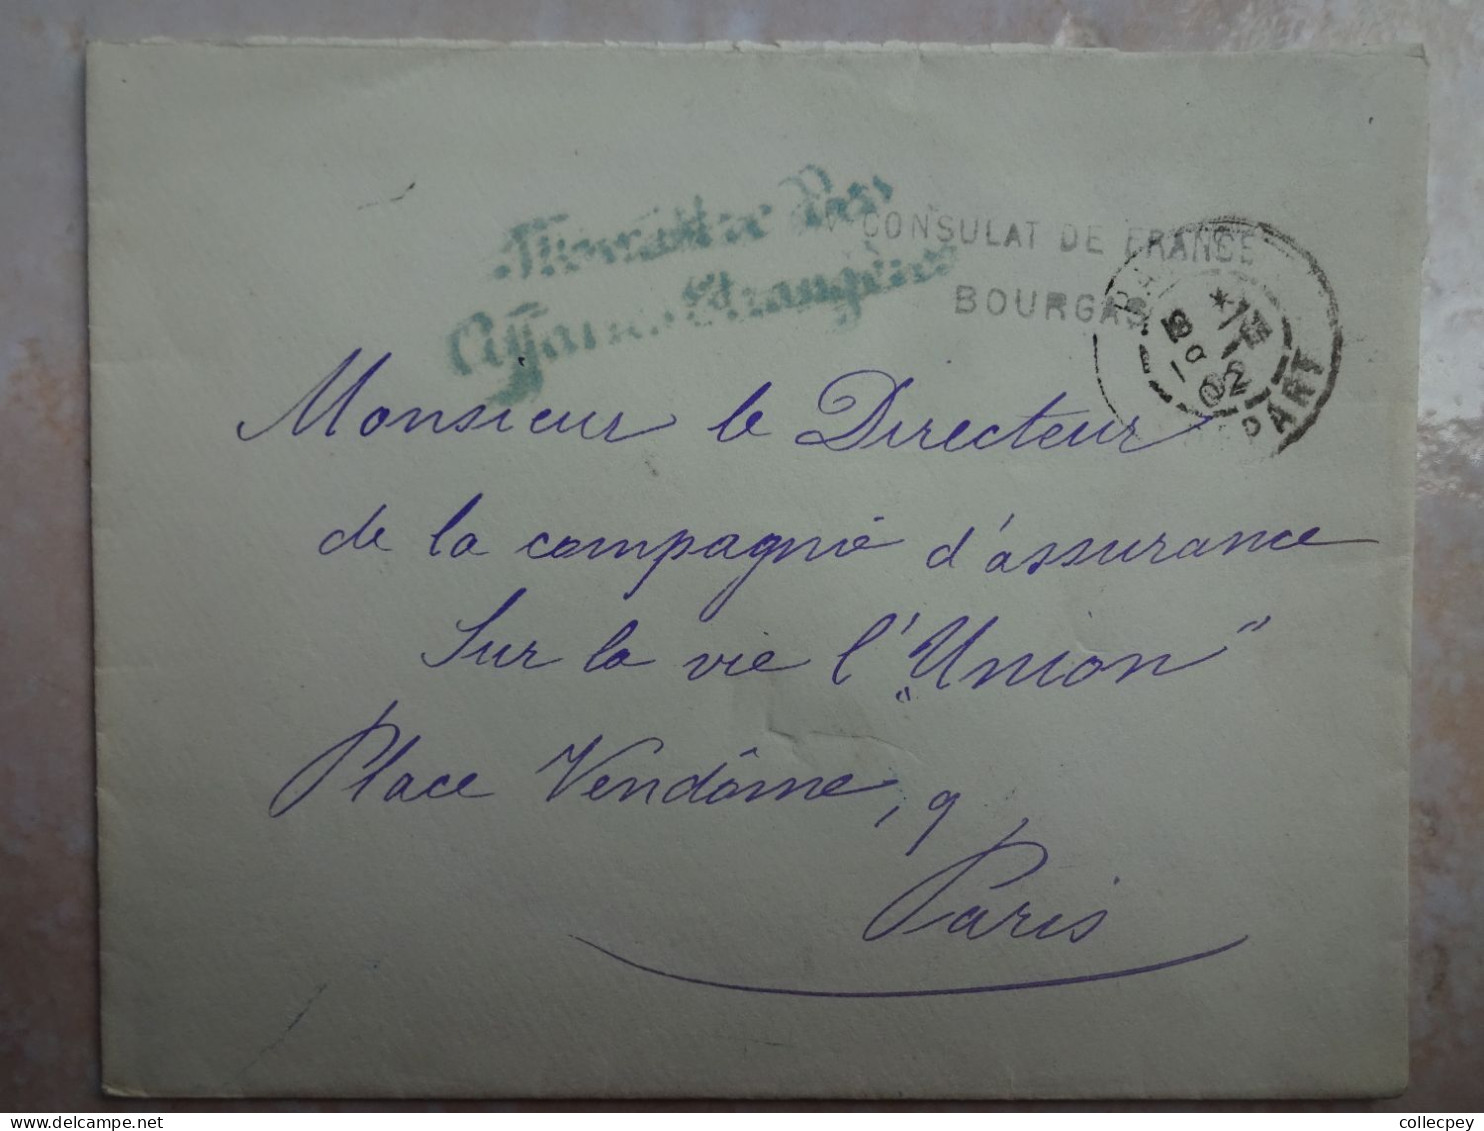 Ministère Des
Affaires Etrangères
Vce CONSULAT DE FRANCE
BOURGAS
02
PART
Monsieur le Directeur
de la compagnie d'assurance
Sur la vie l'"Union"
Place Vendôme, 9
Paris
delcampe.net
collecpey